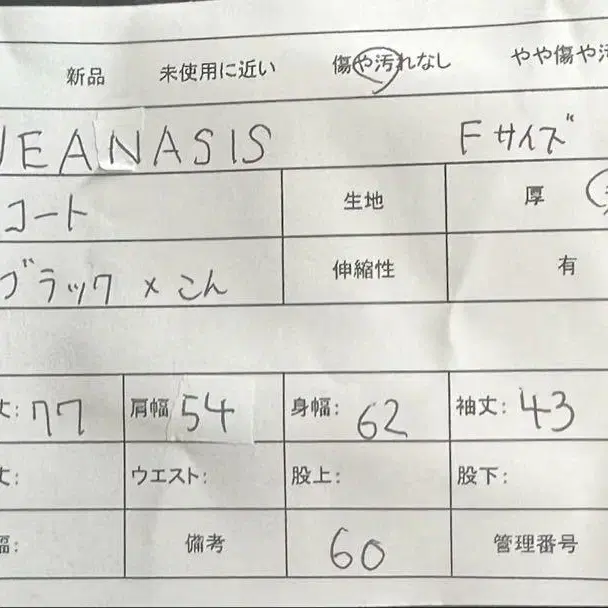 新品 未使用に近い 傷や汚れなし やや傷や汚
JEANASIS Fサイズ
コート 生地 厚
ブラック×こん 伸縮性 有
丈: 77 肩幅 54 身幅: 62 袖丈: 43
丈: ウエスト: 股上: 股下:
幅: 備考 60 管理番号